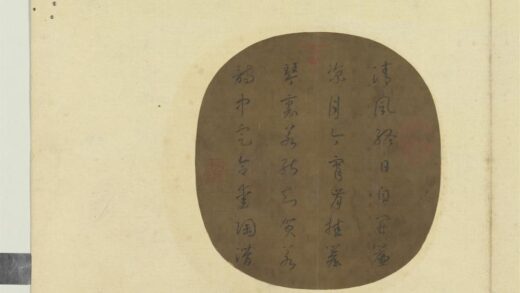 清風終日自開簾
涼月今宵肯挂簷
琴裏若能知賀若
詩中定合愛陶潛